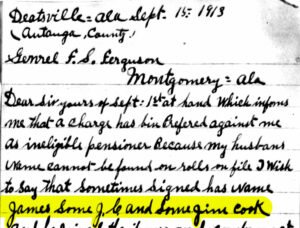 Deatsville = Ala Sept. 1st 1913
(Autauga, County)
Genrel F. S. Ferguson
Montgomery = Ala
Dear Sir yours of Sept. 1st at hand Which informs
me that a Charge has bin Prefered against me
As ineligible pensioner Because my husbans
Name cannot be found on rolls on file I Wish
to Say that Sometimes Signed has Name
James Some J. C and Some Jim Cook
and